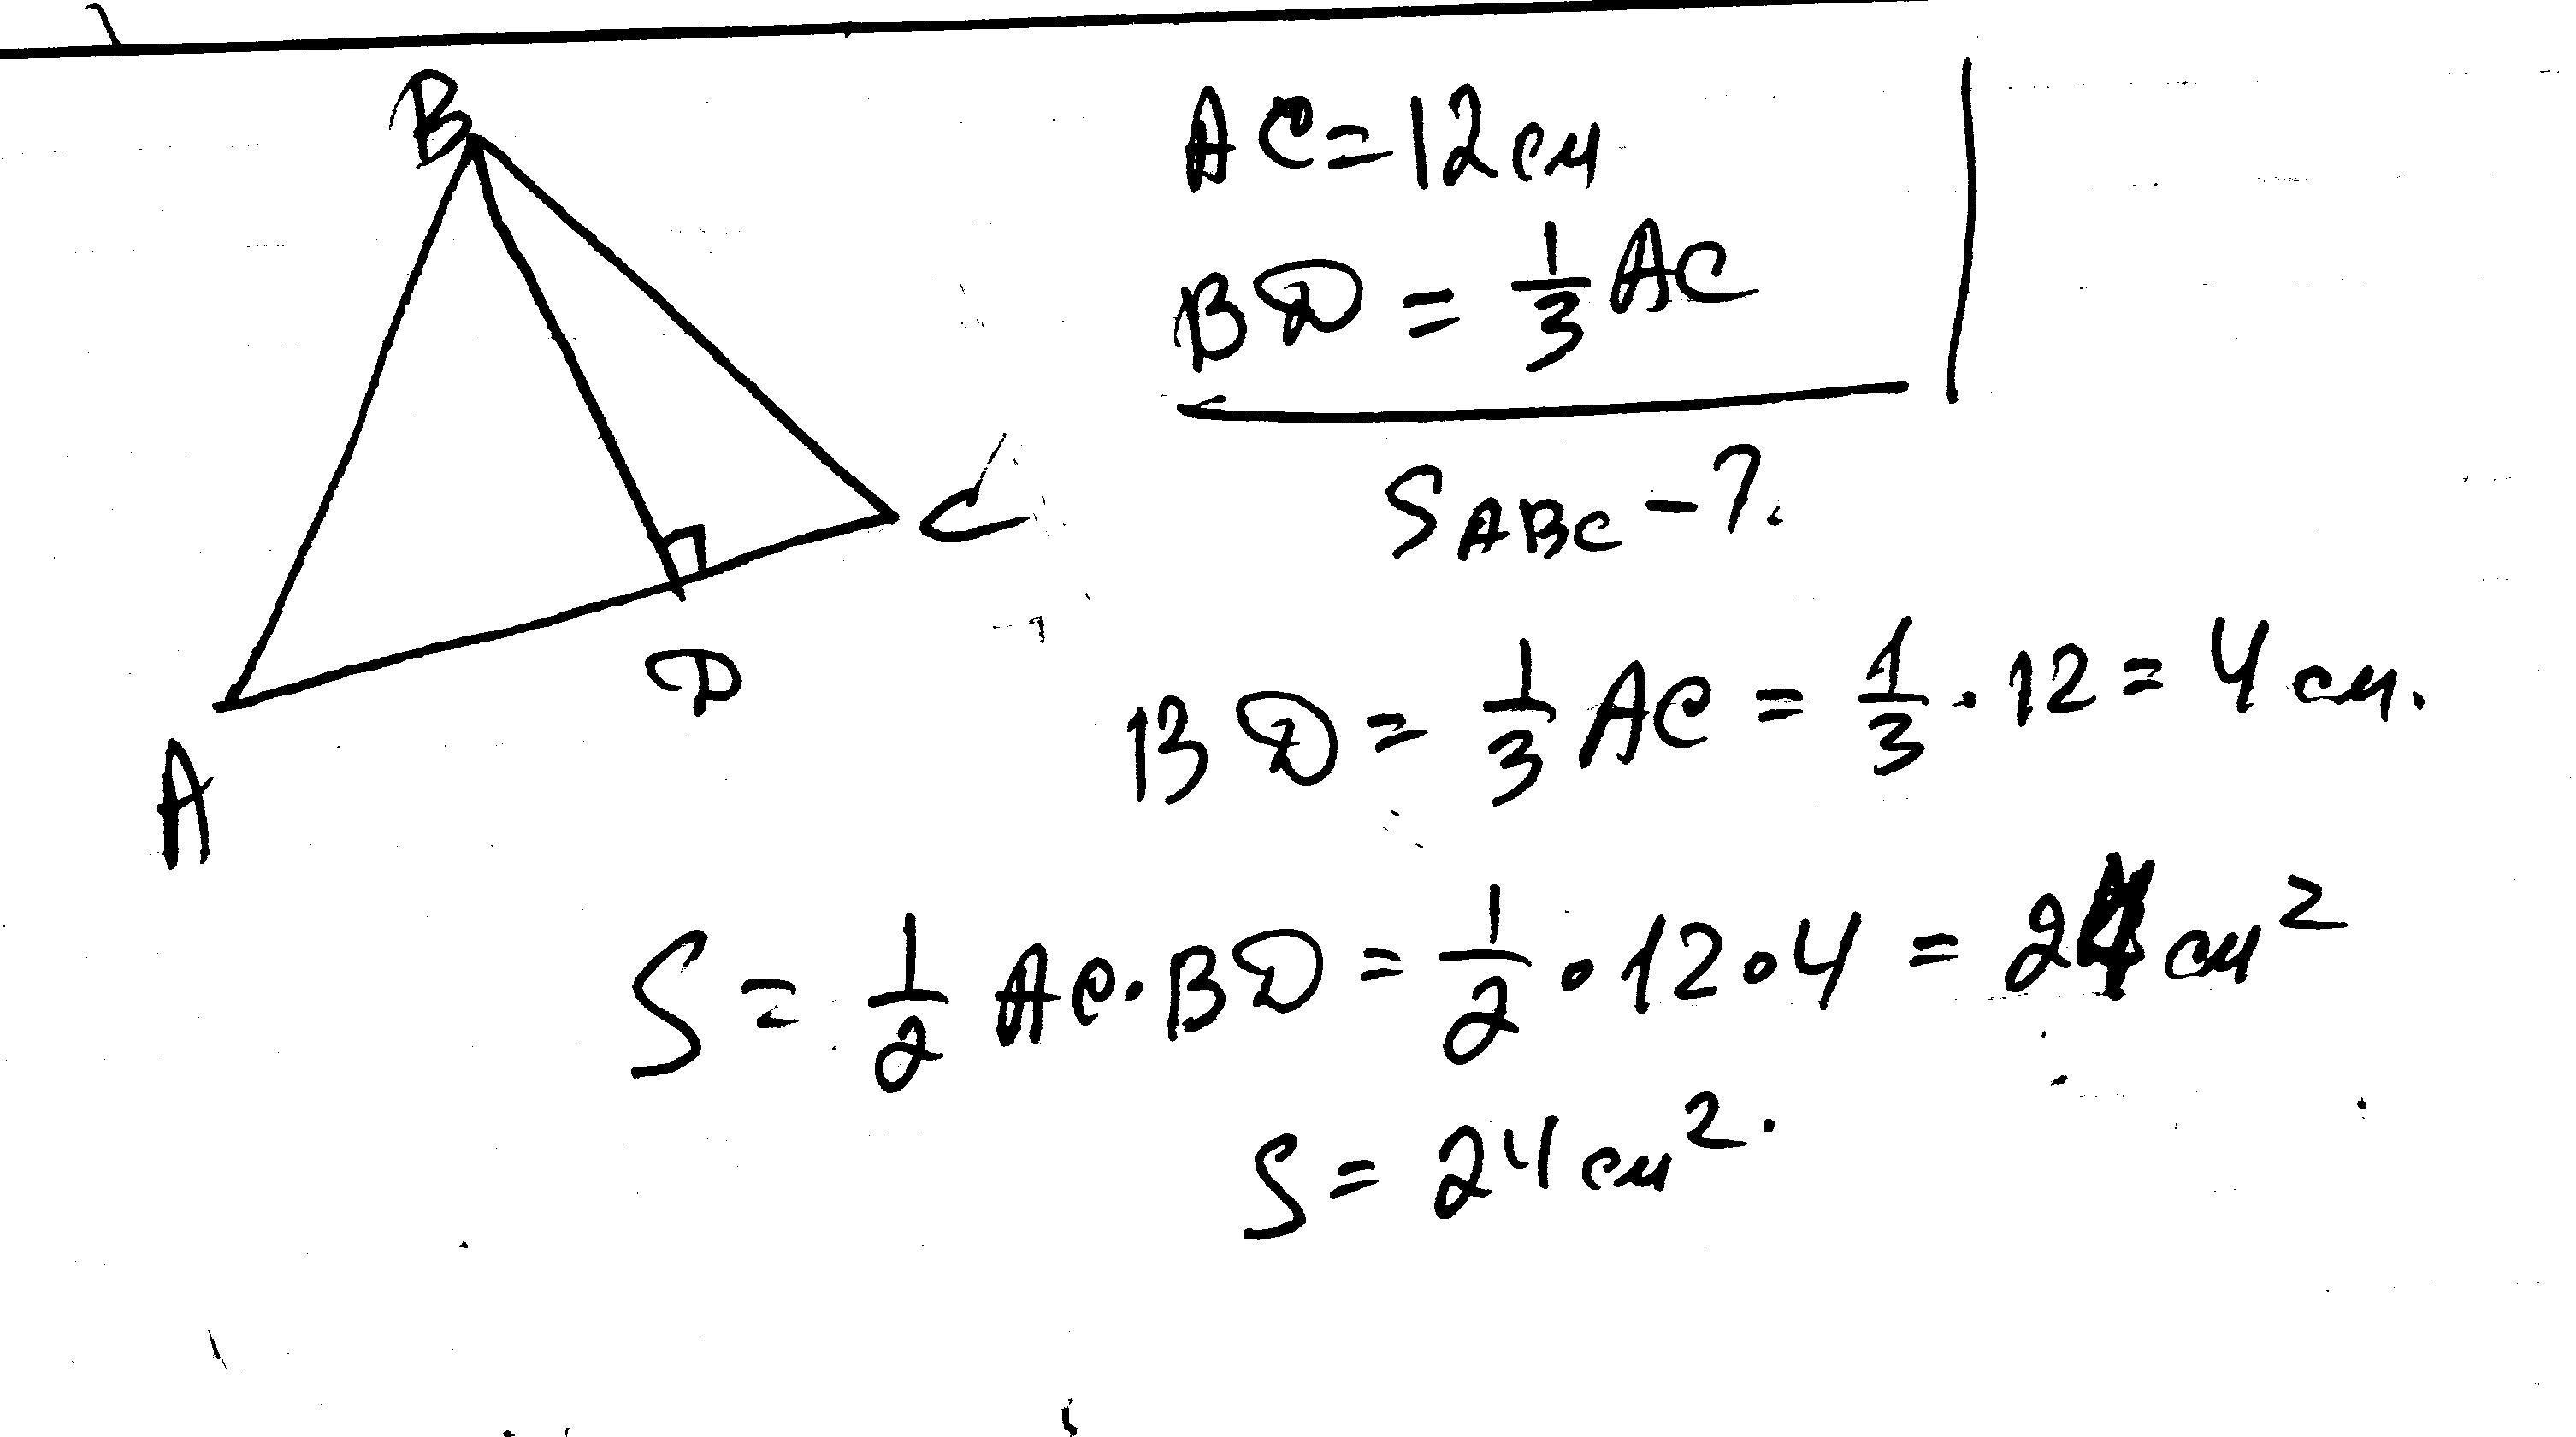 B
AC = 12 см
BD = 1/3 AC
C
S ABC - ?
D
BD = 1/3 AC = 1/3 · 12 = 4 см.
A
S = 1/2 AC · BD = 1/2 · 12 · 4 = 24 см²
S = 24 см².